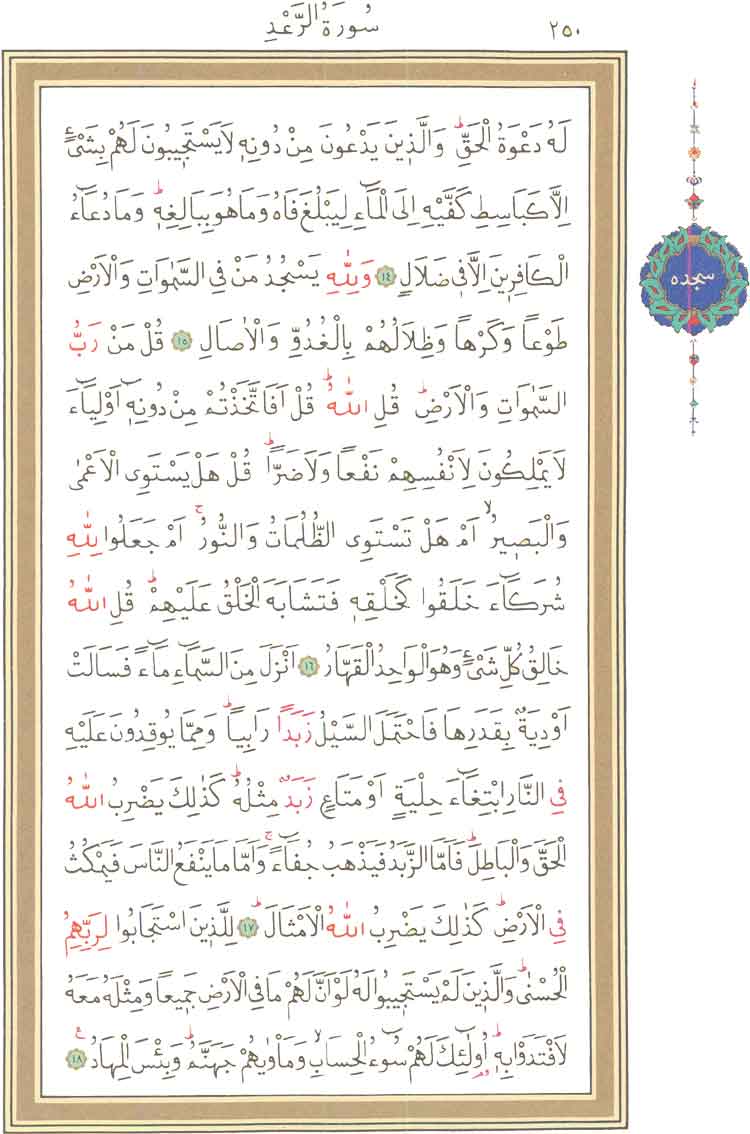 سُورَةُ الرَّعْدِ
٢٥٠
لَهُ دَعْوَةُ الْحَقِّۜ وَالَّذ۪ينَ يَدْعُونَ مِنْ دُونِه۪ لَا يَسْتَج۪يبُونَ لَهُمْ بِشَيْءٍ
اِلَّا كَبَاسِطِ كَفَّيْهِ اِلَى الْمَٓاءِ لِيَبْلُغَ فَاهُ وَمَا هُوَ بِبَالِغِه۪ۜ وَمَا دُعَٓاءُ
الْكَافِر۪ينَ اِلَّا ف۪ي ضَلَالٍ ﴿١٤﴾ وَلِلّٰهِ يَسْجُدُ مَنْ فِي السَّمٰوَاتِ وَالْاَرْضِ
طَوْعاً وَكَرْهاً وَظِلَالُهُمْ بِالْغُدُوِّ وَالْاٰصَالِ ﴿١٥﴾ قُلْ مَنْ رَبُّ
السَّمٰوَاتِ وَالْاَرْضِۜ قُلِ اللّٰهُۜ قُلْ اَفَاتَّخَذْتُمْ مِنْ دُونِه۪ٓ اَوْلِيَٓاءَ
لَا يَمْلِكُونَ لِاَنْفُسِهِمْ نَفْعاً وَلَا ضَراًّۜ قُلْ هَلْ يَسْتَوِي الْاَعْمٰى
وَالْبَص۪يرُۙ اَمْ هَلْ تَسْتَوِي الظُّلُمَاتُ وَالنُّورُۚ اَمْ جَعَلُوا لِلّٰهِ
شُرَكَٓاءَ خَلَقُوا كَخَلْقِه۪ فَتَشَابَهَ الْخَلْقُ عَلَيْهِمْۜ قُلِ اللّٰهُ
خَالِقُ كُلِّ شَيْءٍ وَهُوَ الْوَاحِدُ الْقَهَّارُ ﴿١٦﴾ اَنْزَلَ مِنَ السَّمَٓاءِ مَٓاءً فَسَالَتْ
اَوْدِيَةٌ بِقَدَرِهَا فَاحْتَمَلَ السَّيْلُ زَبَداً رَابِياًۜ وَمِمَّا يُوقِدُونَ عَلَيْهِ
فِي النَّارِ ابْتِغَٓاءَ حِلْيَةٍ اَوْ مَتَاعٍ زَبَدٌ مِثْلُهُۜ كَذٰلِكَ يَضْرِبُ اللّٰهُ
الْحَقَّ وَالْبَاطِلَۜ فَاَمَّا الزَّبَدُ فَيَذْهَبُ جُفَٓاءًۚ وَاَمَّا مَا يَنْفَعُ النَّاسَ فَيَمْكُثُ
فِي الْاَرْضِۜ كَذٰلِكَ يَضْرِبُ اللّٰهُ الْاَمْثَالَۜ ﴿١٧﴾ لِلَّذ۪ينَ اسْتَجَابُوا لِرَبِّهِمُ
الْحُسْنٰىۜ وَالَّذ۪ينَ لَمْ يَسْتَج۪يبُوا لَهُ لَوْ اَنَّ لَهُمْ مَا فِي الْاَرْضِ جَم۪يعاً وَمِثْلَهُ مَعَهُ
لَافْتَدَوْا بِه۪ۜ اُو۬لٰٓئِكَ لَهُمْ سُٓوءُ الْحِسَابِۙ وَمَأْوٰيهُمْ جَهَنَّمُۜ وَبِئْسَ الْمِهَادُ۟ ﴿١٨﴾
سجده